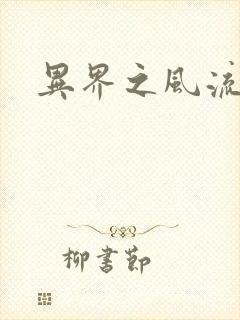 異界之風流
柳書節